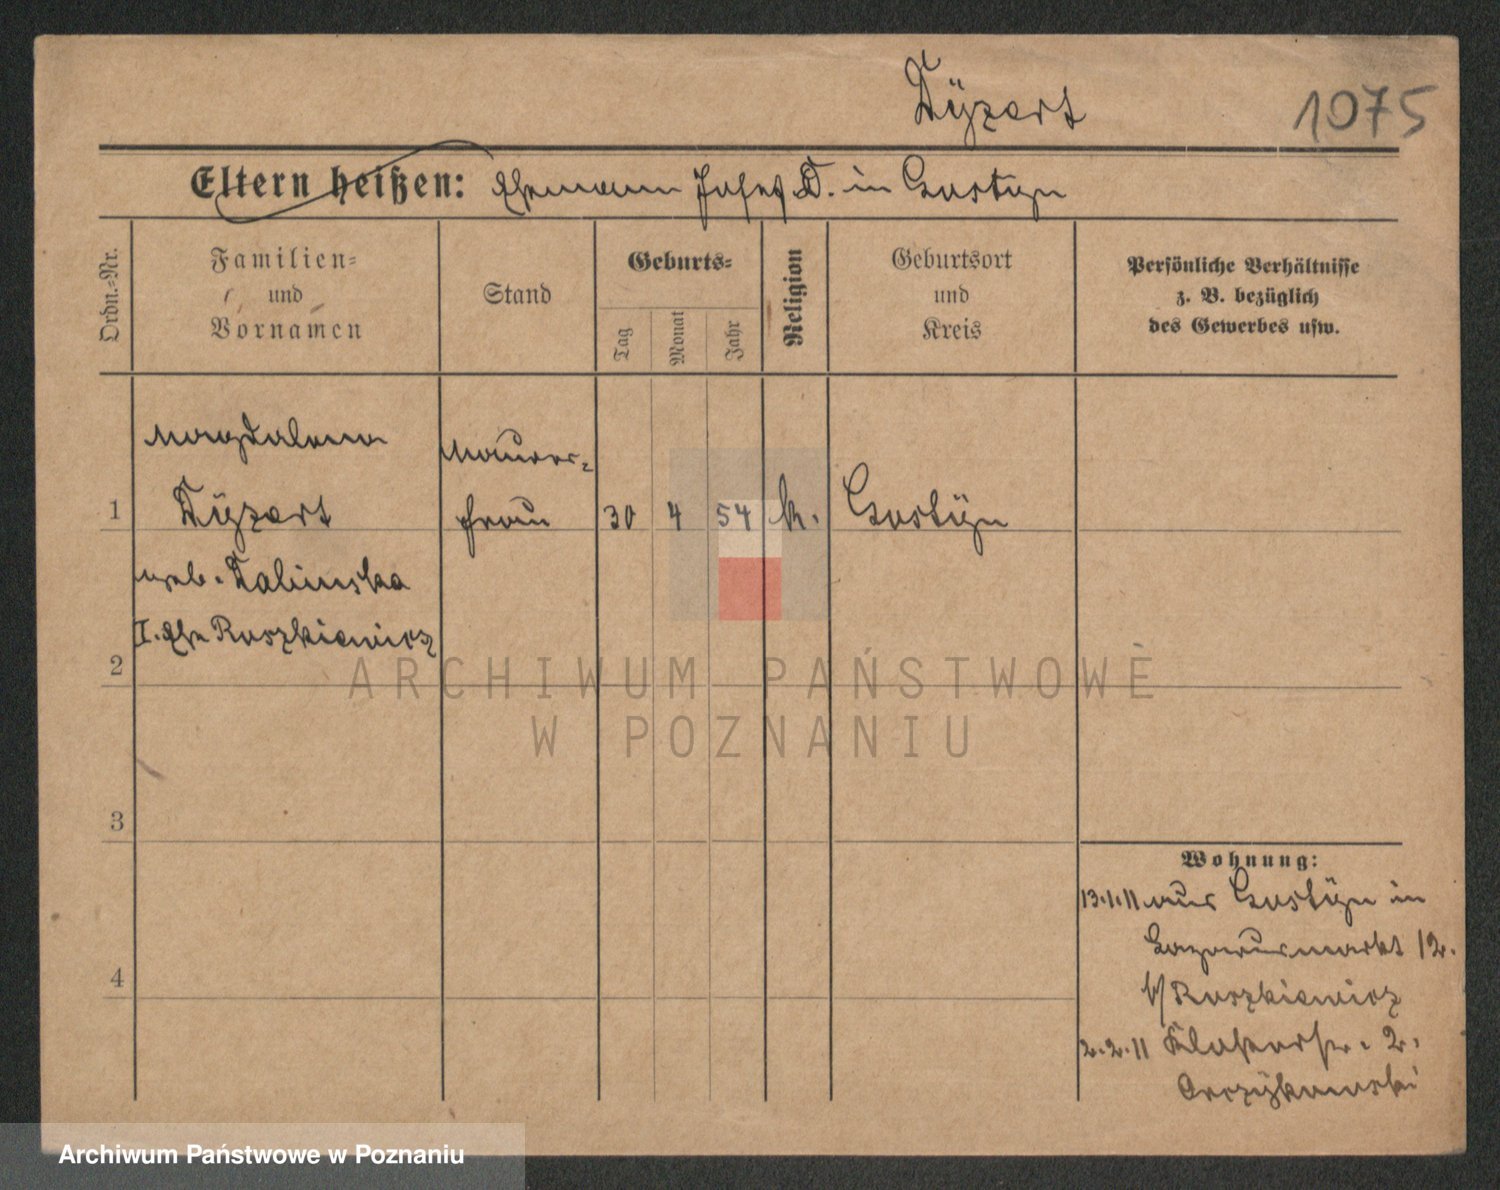 Dyzert
1075
Eltern heißen: Ehemann Josef D. in Gostyn
Ordn.-Nr.
Familien-
und
Vornamen
Stand
Geburts-
Tag
Monat
Jahr
Religion
Geburtsort
und
Kreis
Persönliche Verhältnisse
z. B. bezüglich
des Gewerbes usw.
Magdalena
Maurer-
1 Dyzert frau 30 4 54 k. Gostyn
geb. Talinska
I. Ehe Ruszkiewicz
2
ARCHIWUM PAŃSTWOWE
W POZNANIU
3
4
Wohnung:
13.1.11 aus Gostyn in
markt 12.
b/ Ruszkiewicz
2.2.11 Klosterstr. 2.
Archiwum Państwowe w Poznaniu